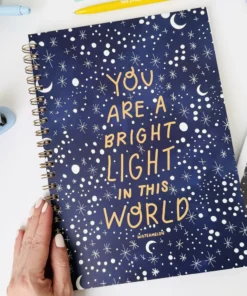 YOU
ARE A
BRIGHT
LIGHT
IN THIS
WORLD